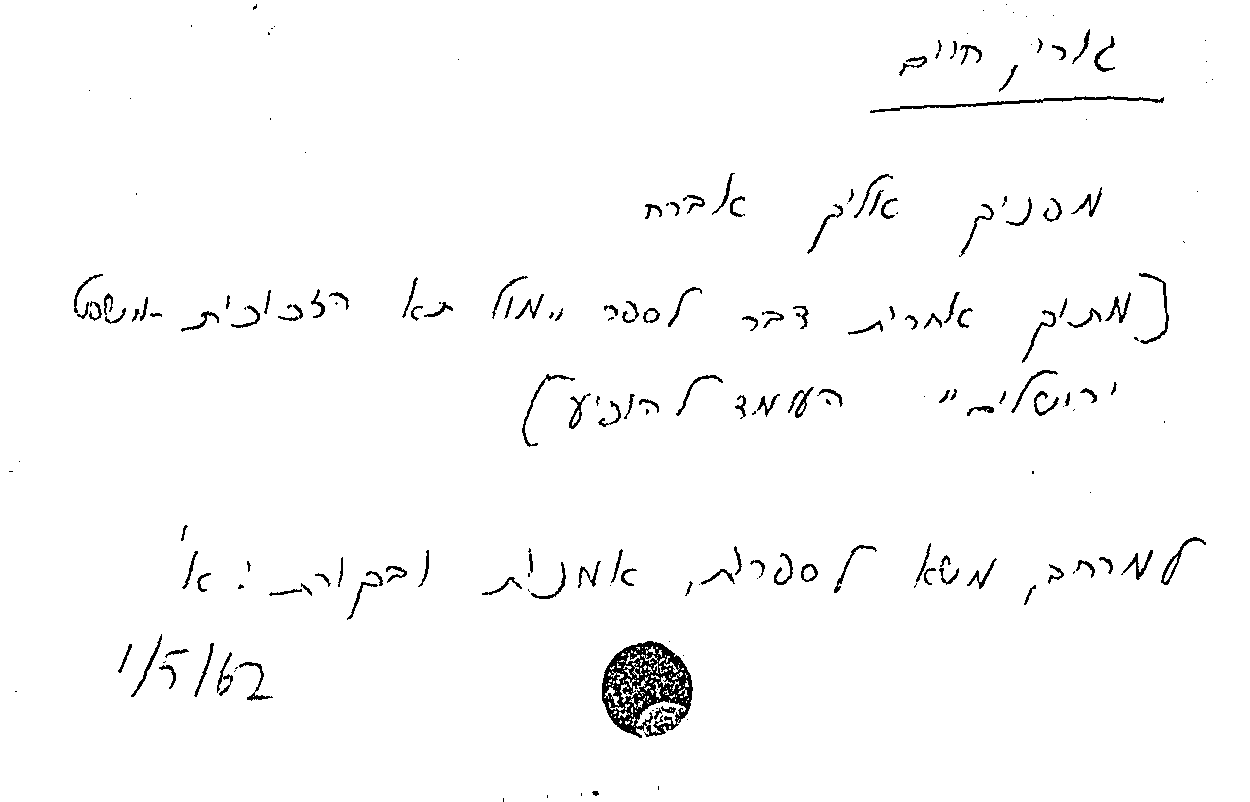 גורי, חיים
מפניך אליך אברח
[מתוך אחרית דבר לספר "מול תא הזכוכית - משפט
ירושלים" העומד להופיע]
למרחב, משא לספרות, אמנות ובקורת: א'
1/5/62